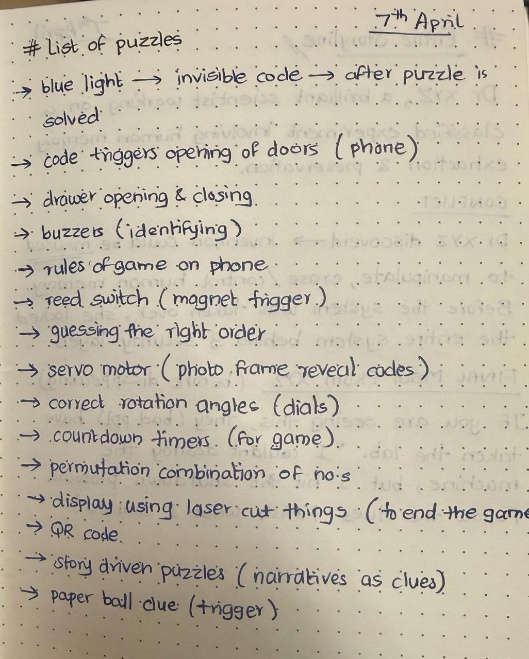 7th April
# List of puzzles
→ blue light → invisible code → after puzzle is
solved
→ code triggers opening of doors (phone)
→ drawer opening & closing.
→ buzzers (identifying)
→ rules of game on phone
→ reed switch (magnet trigger)
→ guessing the right order
→ servo motor (photo frame reveal codes)
→ correct rotation angles (dials)
→ countdown timers. (for game)
→ permutation combination of no.s
→ display using laser cut things (to end the game
→ QR code.
→ story driven puzzles (narratives as clues)
→ paper ball clue (trigger)